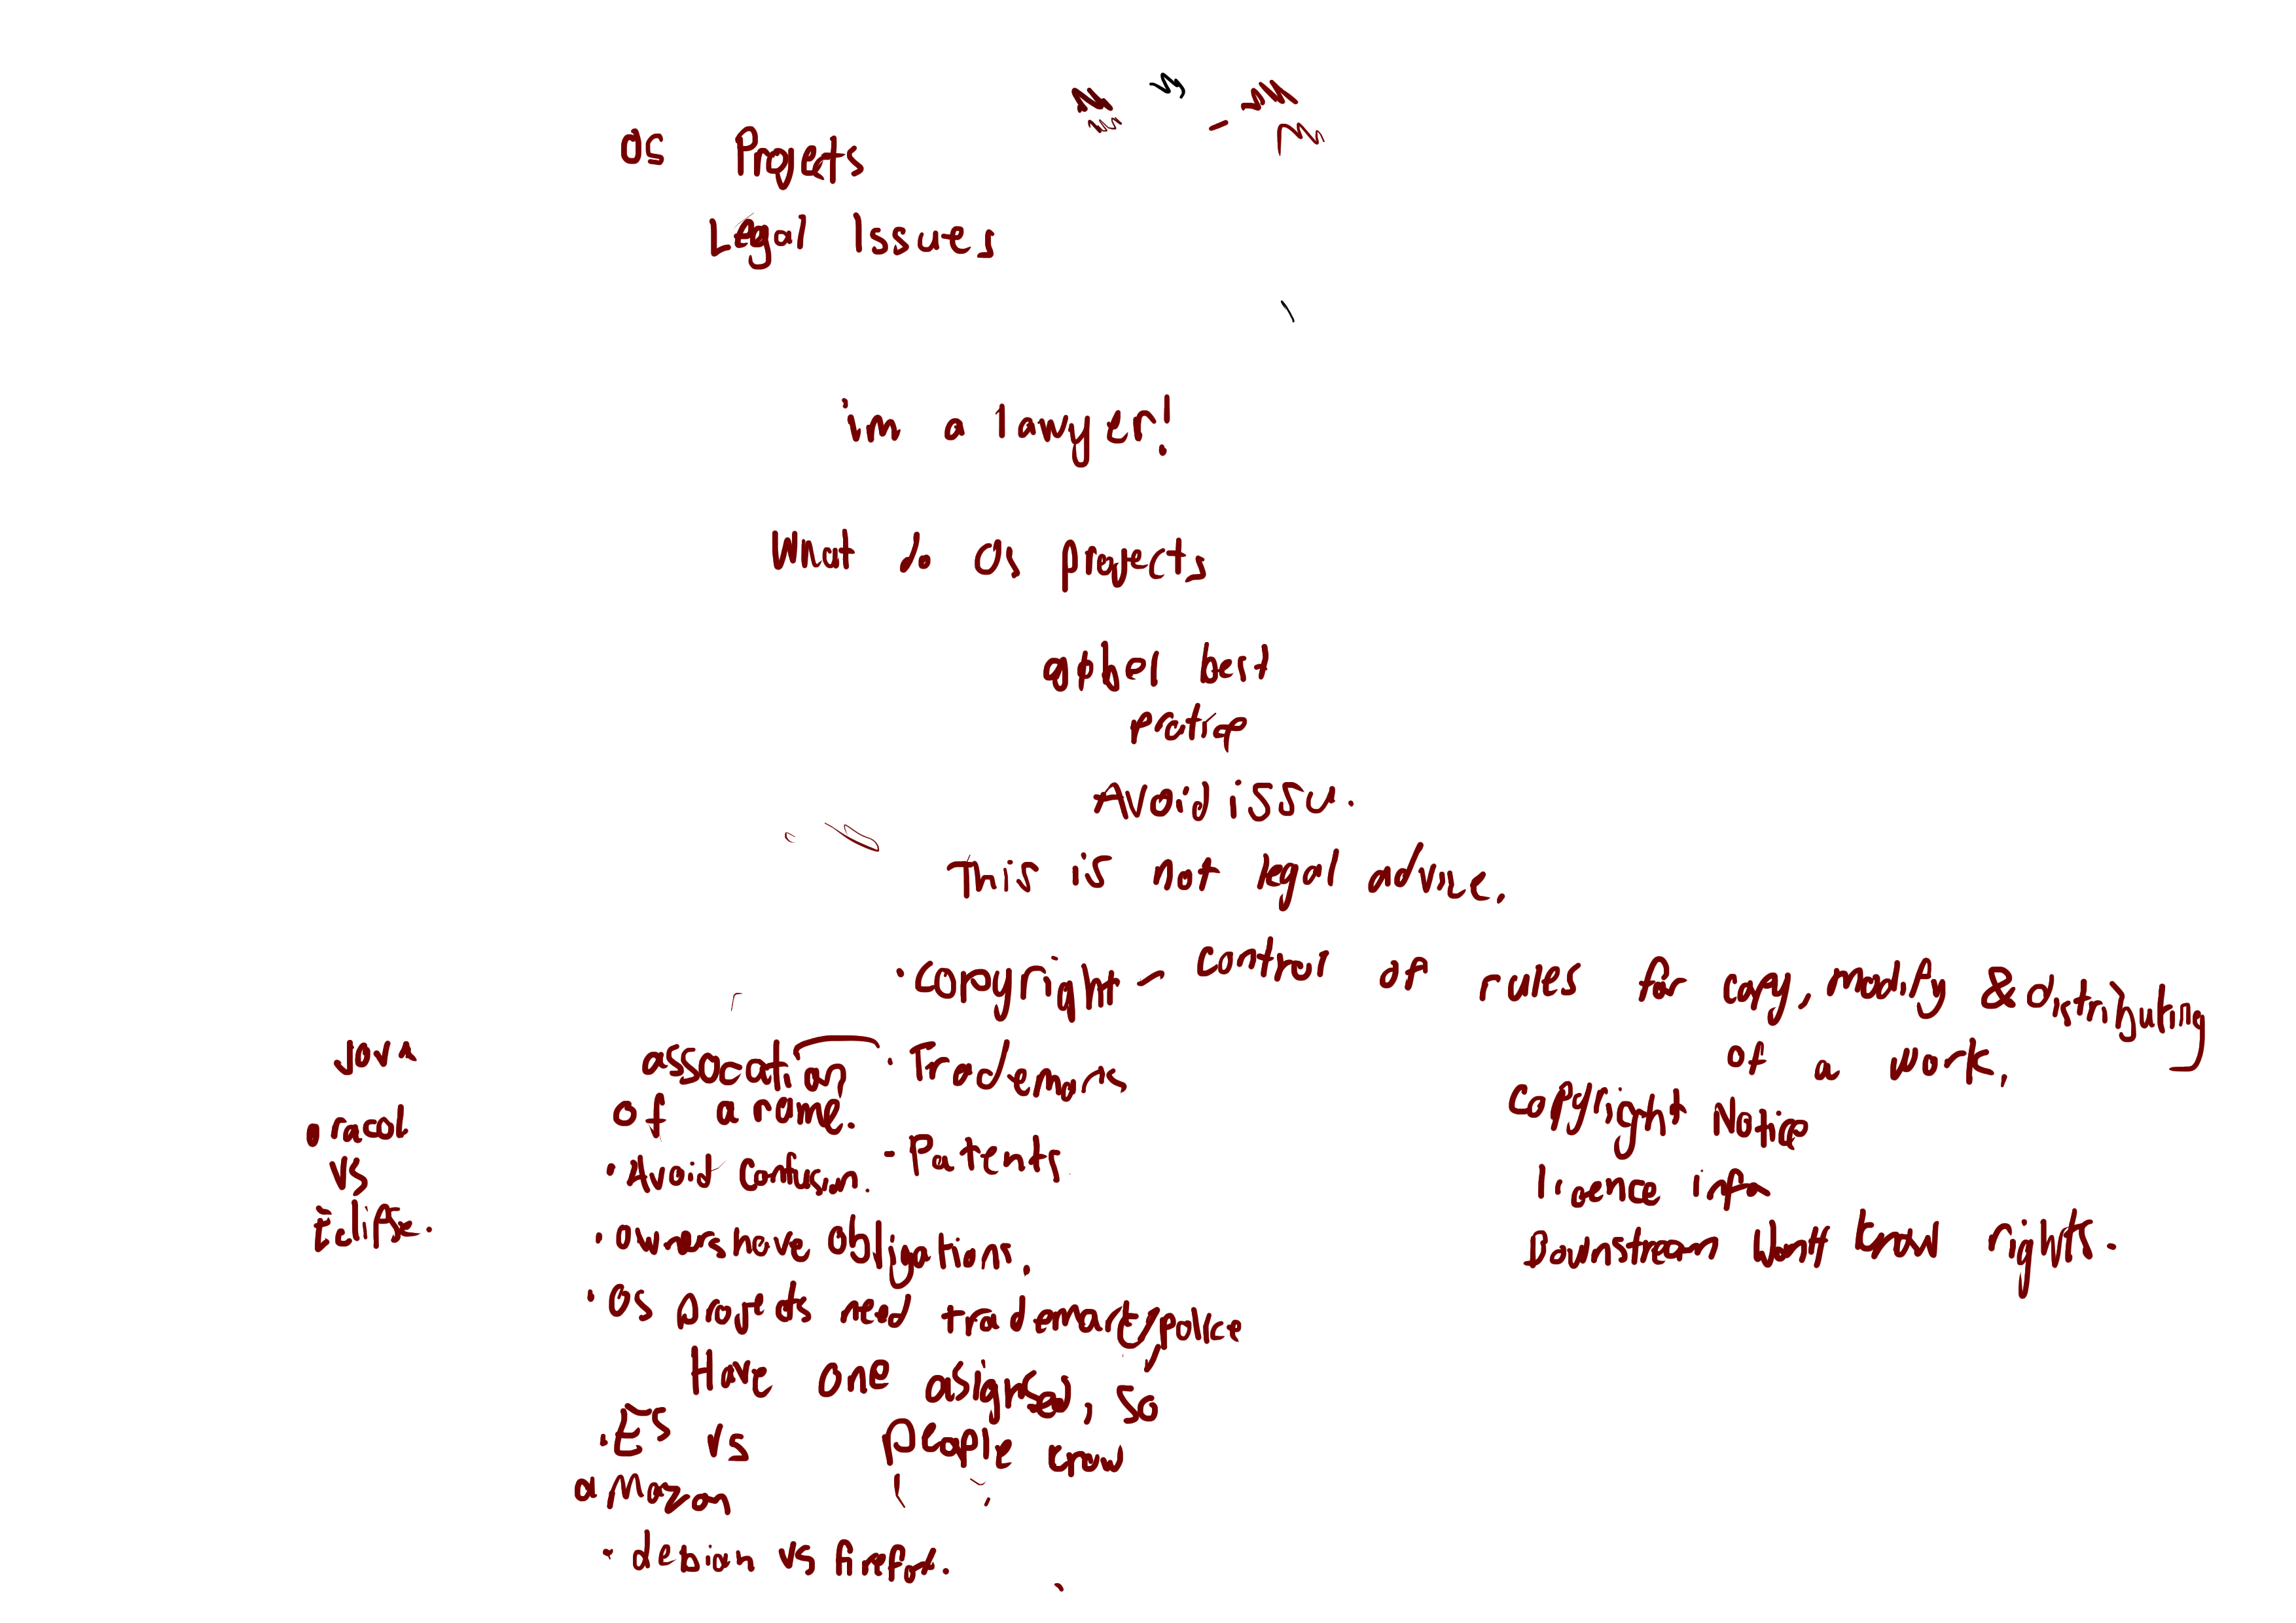 OS Projects
Legal Issues
im a lawyer!
What do OS projects
best
Avoid issu.
This is not legal advice.
· Copyright - control of rules for copy, modify & distributing
of a work.
Copyright Notice
licence info
Downstream Want know rights.
· Trademarks
- Patents
association
of a name.
· Avoid Confusion.
· owners have obligations.
· OS projects need trademark police
Have one assigned, so
people know
· ES vs
amazon
· debian vs firefox.
Java
oracol
VS
Eclipse.